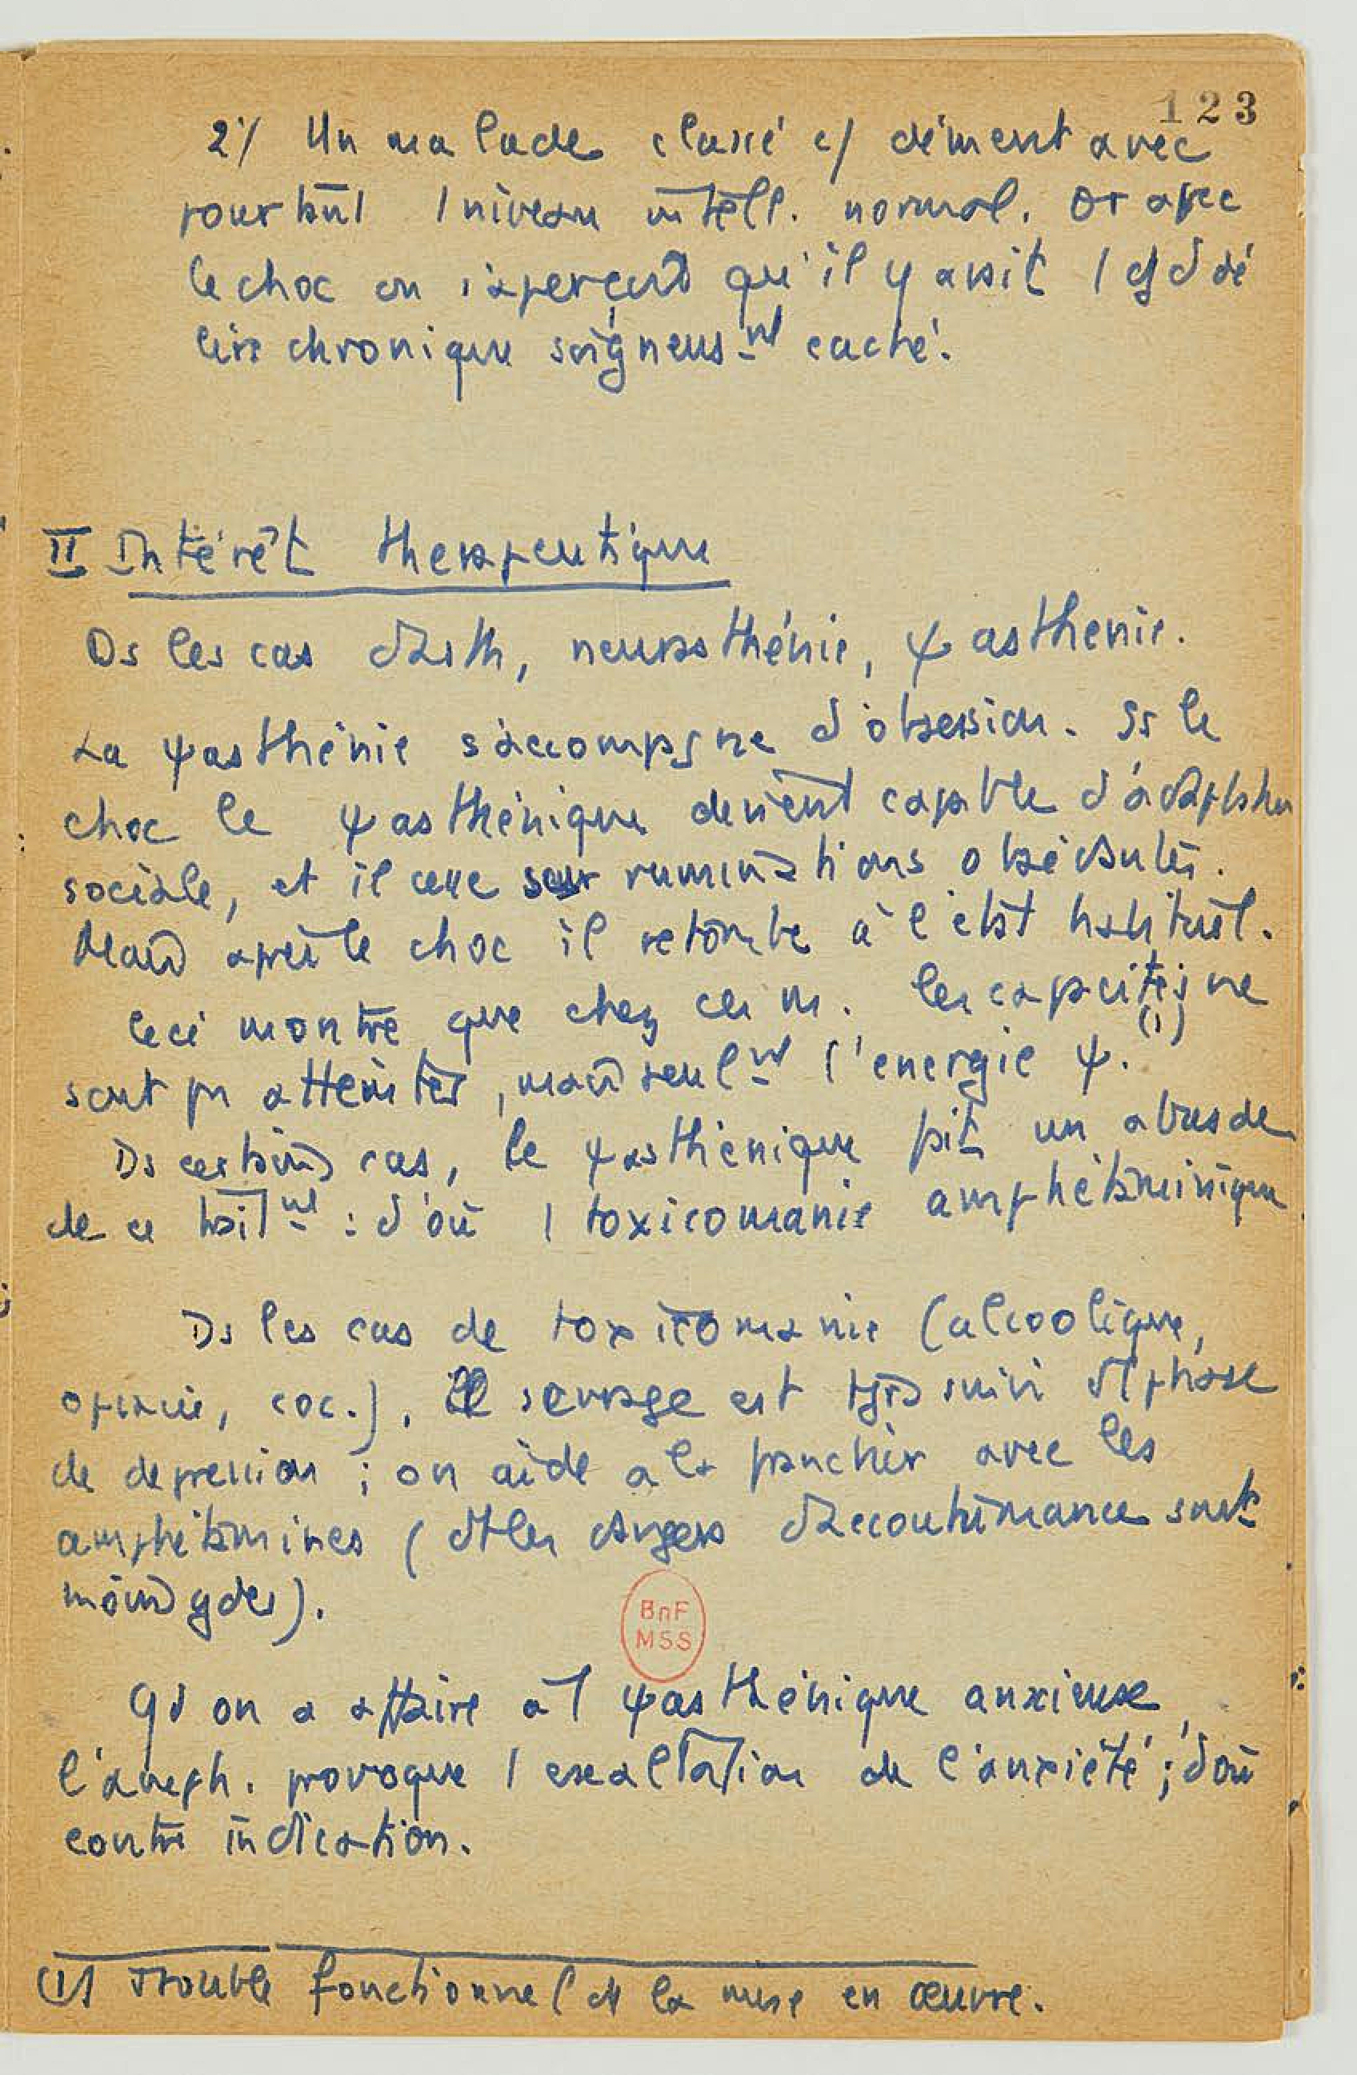 123
2°/ Un malade classé c/ dément avec
pourtant 1 niveau intell. normal. Or avec
le choc on s'aperçoit qu'il y avait 1 dé
lire chronique soigneus-nt caché.
II Intérêt therapeutique
Ds les cas d'asth, neurasthénie, ψasthenie.
La ψasthénie s'accompagne d'obsession. Ss le
choc le ψasthénique devient capable d'adaptation
sociale, et il cesse ruminations obsédantes.
Mais après le choc il retombe à l'état habituel.
Ceci montre que chez ces m. les capacités ne
sont pas atteintes, mais seul-nt l'energie ψ. (1)
Ds certains cas, le ψasthénique fait un abus de
de ce trait-nt : d'où 1 toxicomanie amphétaminique
Ds les cas de toxicomanie (alcoolique,
opiacée, coc.), le sevrage est tjrs suivi d'1 phase
de depression ; on aide a la franchir avec les
amphétamines (dt les dangers d'accoutumance sont
moins gdes).
Qd on a affaire à 1 ψasthénique anxieuse,
l'amph. provoque 1 exaltation de l'anxiété ; d'où
contre indication.
BnF
MSS
(1) Trouble fonctionnel ds la mise en œuvre.